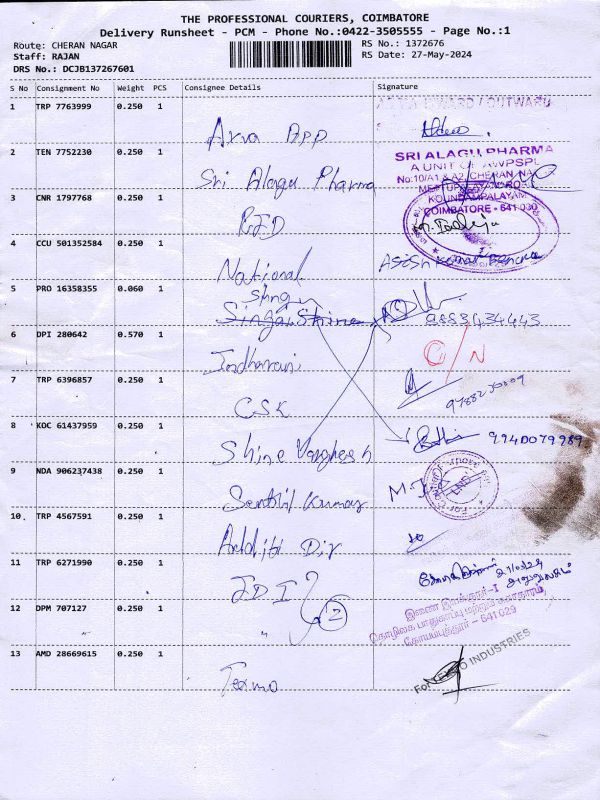 THE PROFESSIONAL COURIERS, COIMBATORE
Delivery Runsheet - PCM - Phone No.:0422-3505555 - Page No.:1
Route: CHERAN NAGAR
RS No.: 1372676
Staff: RAJAN
RS Date: 27-May-2024
DRS No.: DCJB137267601
S No Consignment No Weight PCS Consignee Details Signature
1 TRP 7763999 0.250 1
INWARD / OUTWARD
2 TEN 7752230 0.250 1
Sri Alagu Pharma
SRI ALAGU PHARMA
A UNIT OF AWPSPL
No:10/A1 & A2, CHERAN NA
COIMBATORE - 641 030
3 CNR 1797768 0.250 1
4 CCU 501352584 0.250 1
National
5 PRO 16358355 0.060 1
6 DPI 280642 0.570 1
Indharani
O/N
7 TRP 6396857 0.250 1
CSK
8 KOC 61437959 0.250 1
Shine Varghesh
9940079989
9 NDA 906237438 0.250 1
Senthil Kumar
10 TRP 4567591 0.250 1
11 TRP 6271990 0.250 1
JDI
இணை இயக்குநர்-I
தொழிலக பாதுகாப்பு மற்றும் சுகாதாரம்,
கோயம்புத்தூர் - 641 029
12 DPM 707127 0.250 1
" 2
13 AMD 28669615 0.250 1
Texmo
INDUSTRIES